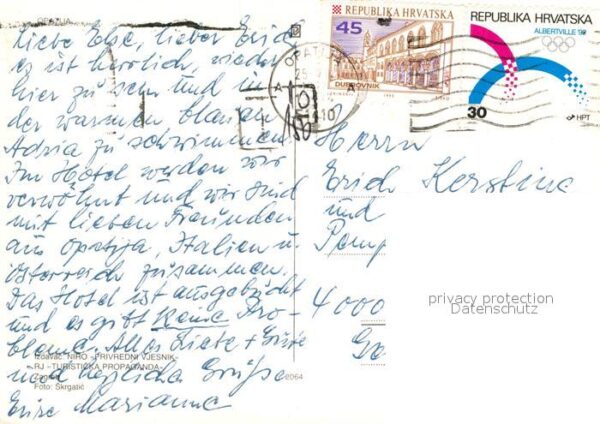 Liebe Else, lieber Erich
es ist herrlich, wieder
hier zu sein und in
der warmen blauen
Adria zu schwimmen.
Im Hotel werden wir
verwöhnt und wir sind
mit lieben Freunden
aus Opatija, Italien u.
Österreich zusammen.
Das Hotel ist ausgebucht
und es gibt keine Pro-
bleme. Alles Liebe + Gute
und herzliche Grüße
Eure Marianne
Izdavač: NIRO »PRIVREDNI VJESNIK«
RJ »TURISTIČKA PROPAGANDA«
Foto: Škrgatić
2064
REPUBLIKA HRVATSKA
45
DUBROVNIK
REPUBLIKA HRVATSKA
ALBERTVILLE '92
30
HPT
OPATIJA
Herrn
Erich
und
4000
privacy protection
Datenschutz